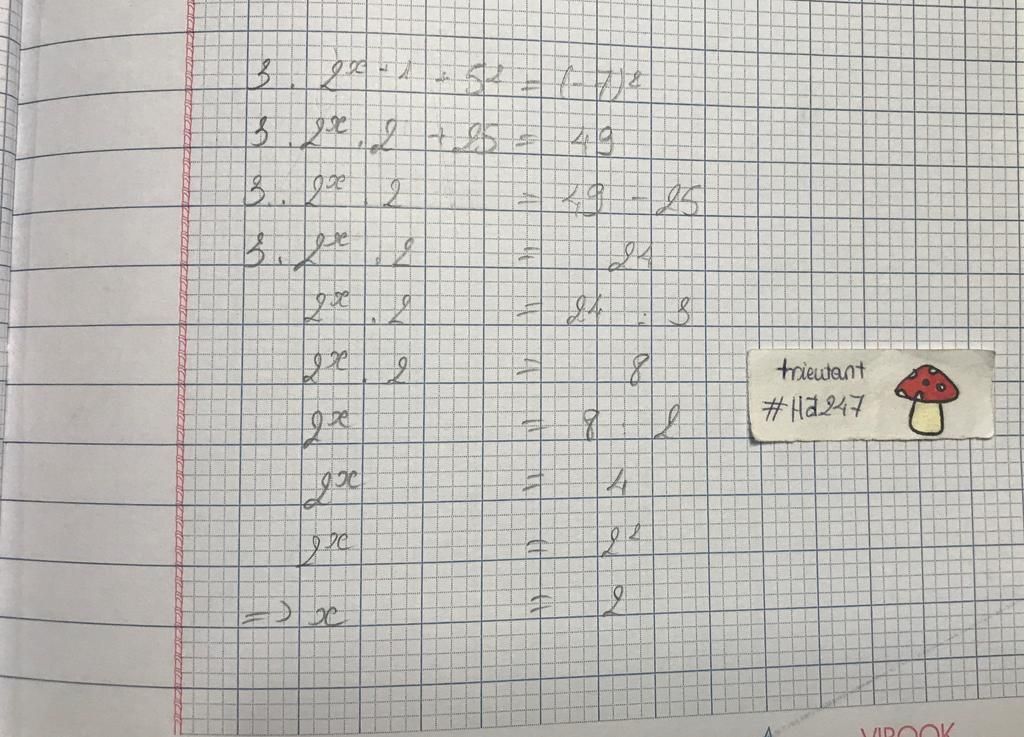 3 . 2ˣ⁻¹ + 5² = (-7)²
3 . 2ˣ . 2 + 25 = 49
3 . 2ˣ . 2 = 49 - 25
3 . 2ˣ . 2 = 24
2ˣ . 2 = 24 : 3
2ˣ . 2 = 8
2ˣ = 8 : 2
2ˣ = 4
2ˣ = 2²
=> x = 2
trieutant
#Hd247
VIBOOK